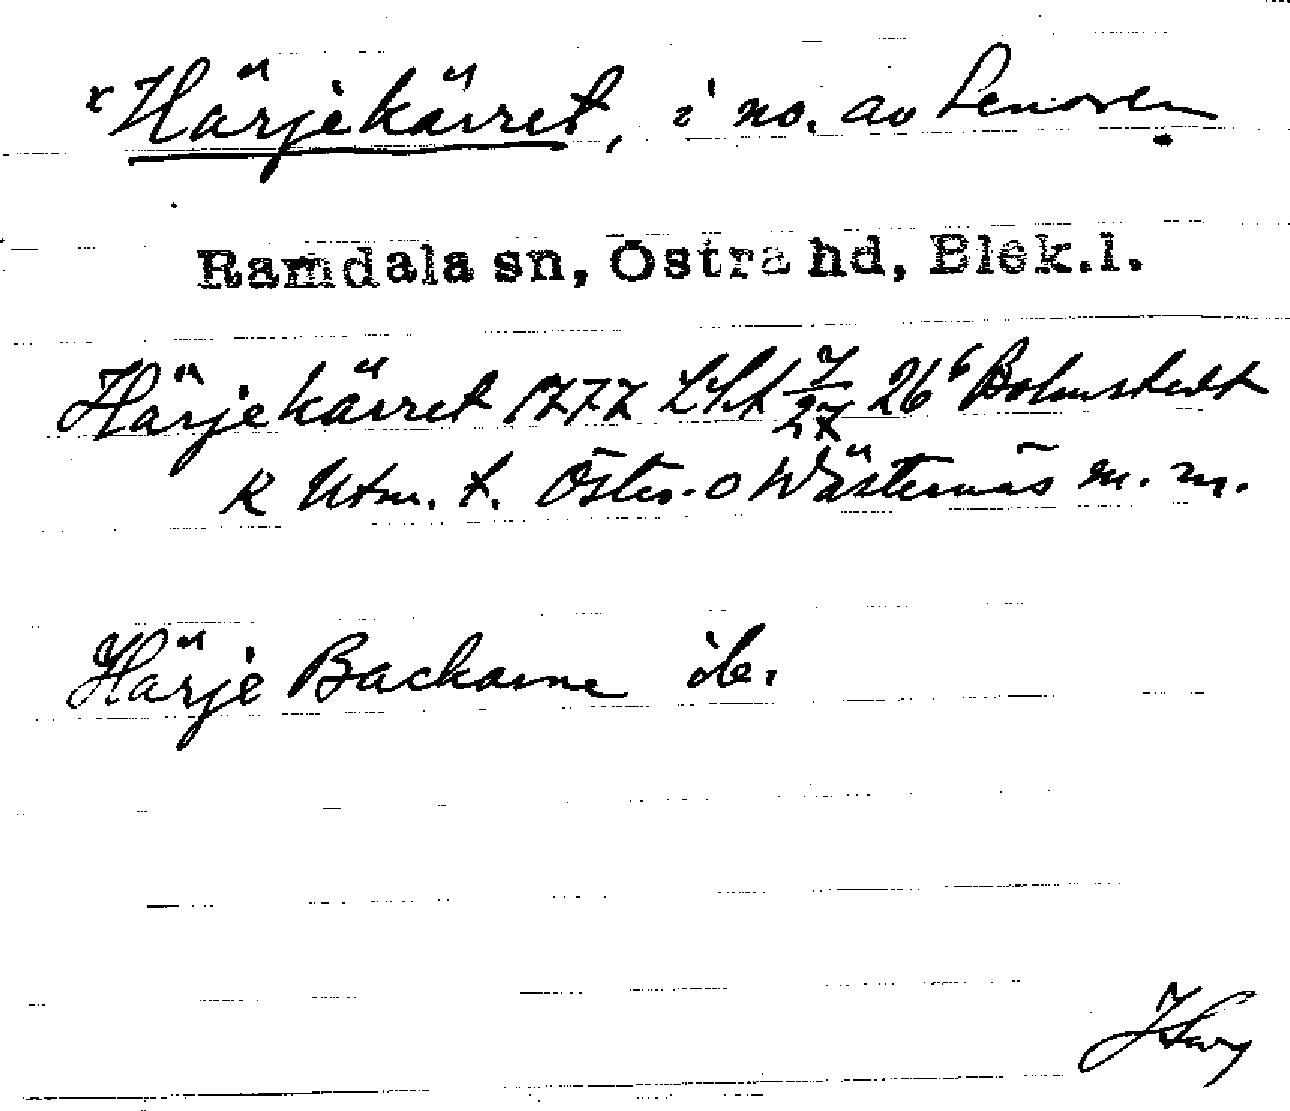 x Härjekärret, i no. av Lenoren
Ramdala sn, Östra hd, Blek.l.
Härjekärret 1777 LSA 7/27 26⁶ Bolmstedt
K Utm. t. Öster- o Wästernäs m. m.
Härje Backarne ib.